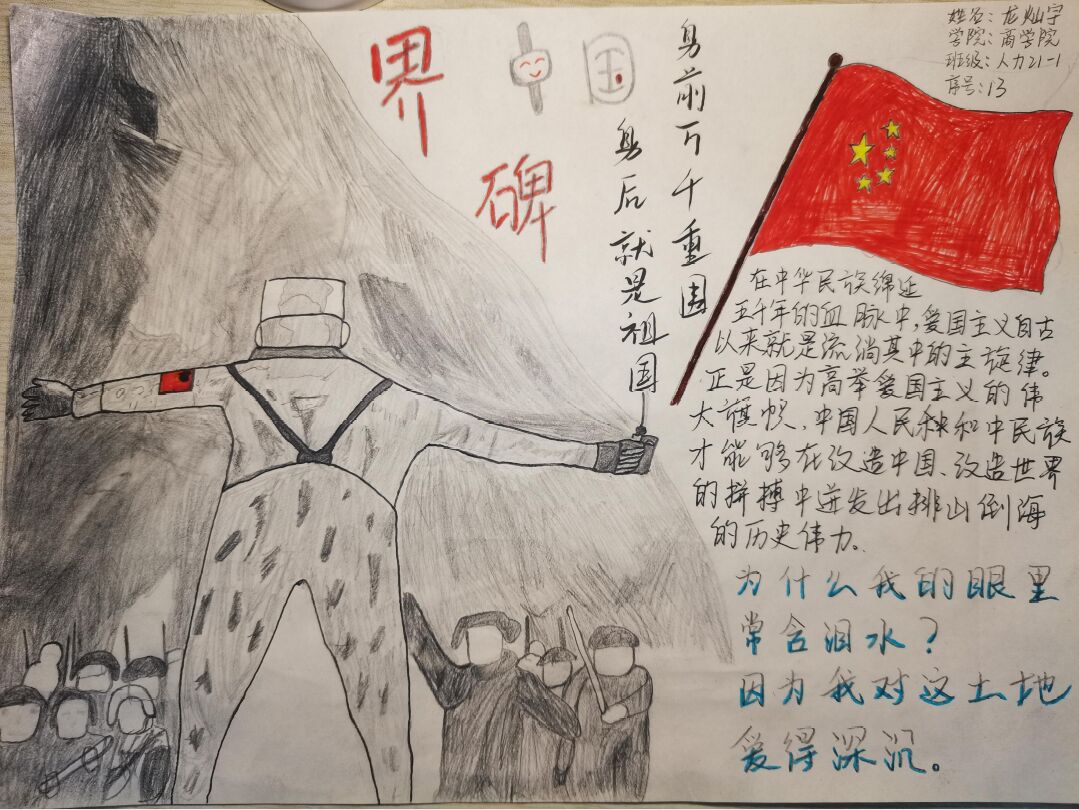 姓名:龙灿宇
学院:商学院
班级:人力21-1
序号:13
中国
界碑
身前万千重围
身后就是祖国
在中华民族绵延
五千年的血脉中,爱国主义自古
以来就是流淌其中的主旋律。
正是因为高举爱国主义的伟
大旗帜,中国人民种和中民族
才能够在改造中国、改造世界
的拼搏中迸发出排山倒海
的历史伟力。
为什么我的眼里
常含泪水?
因为我对这土地
爱得深沉。